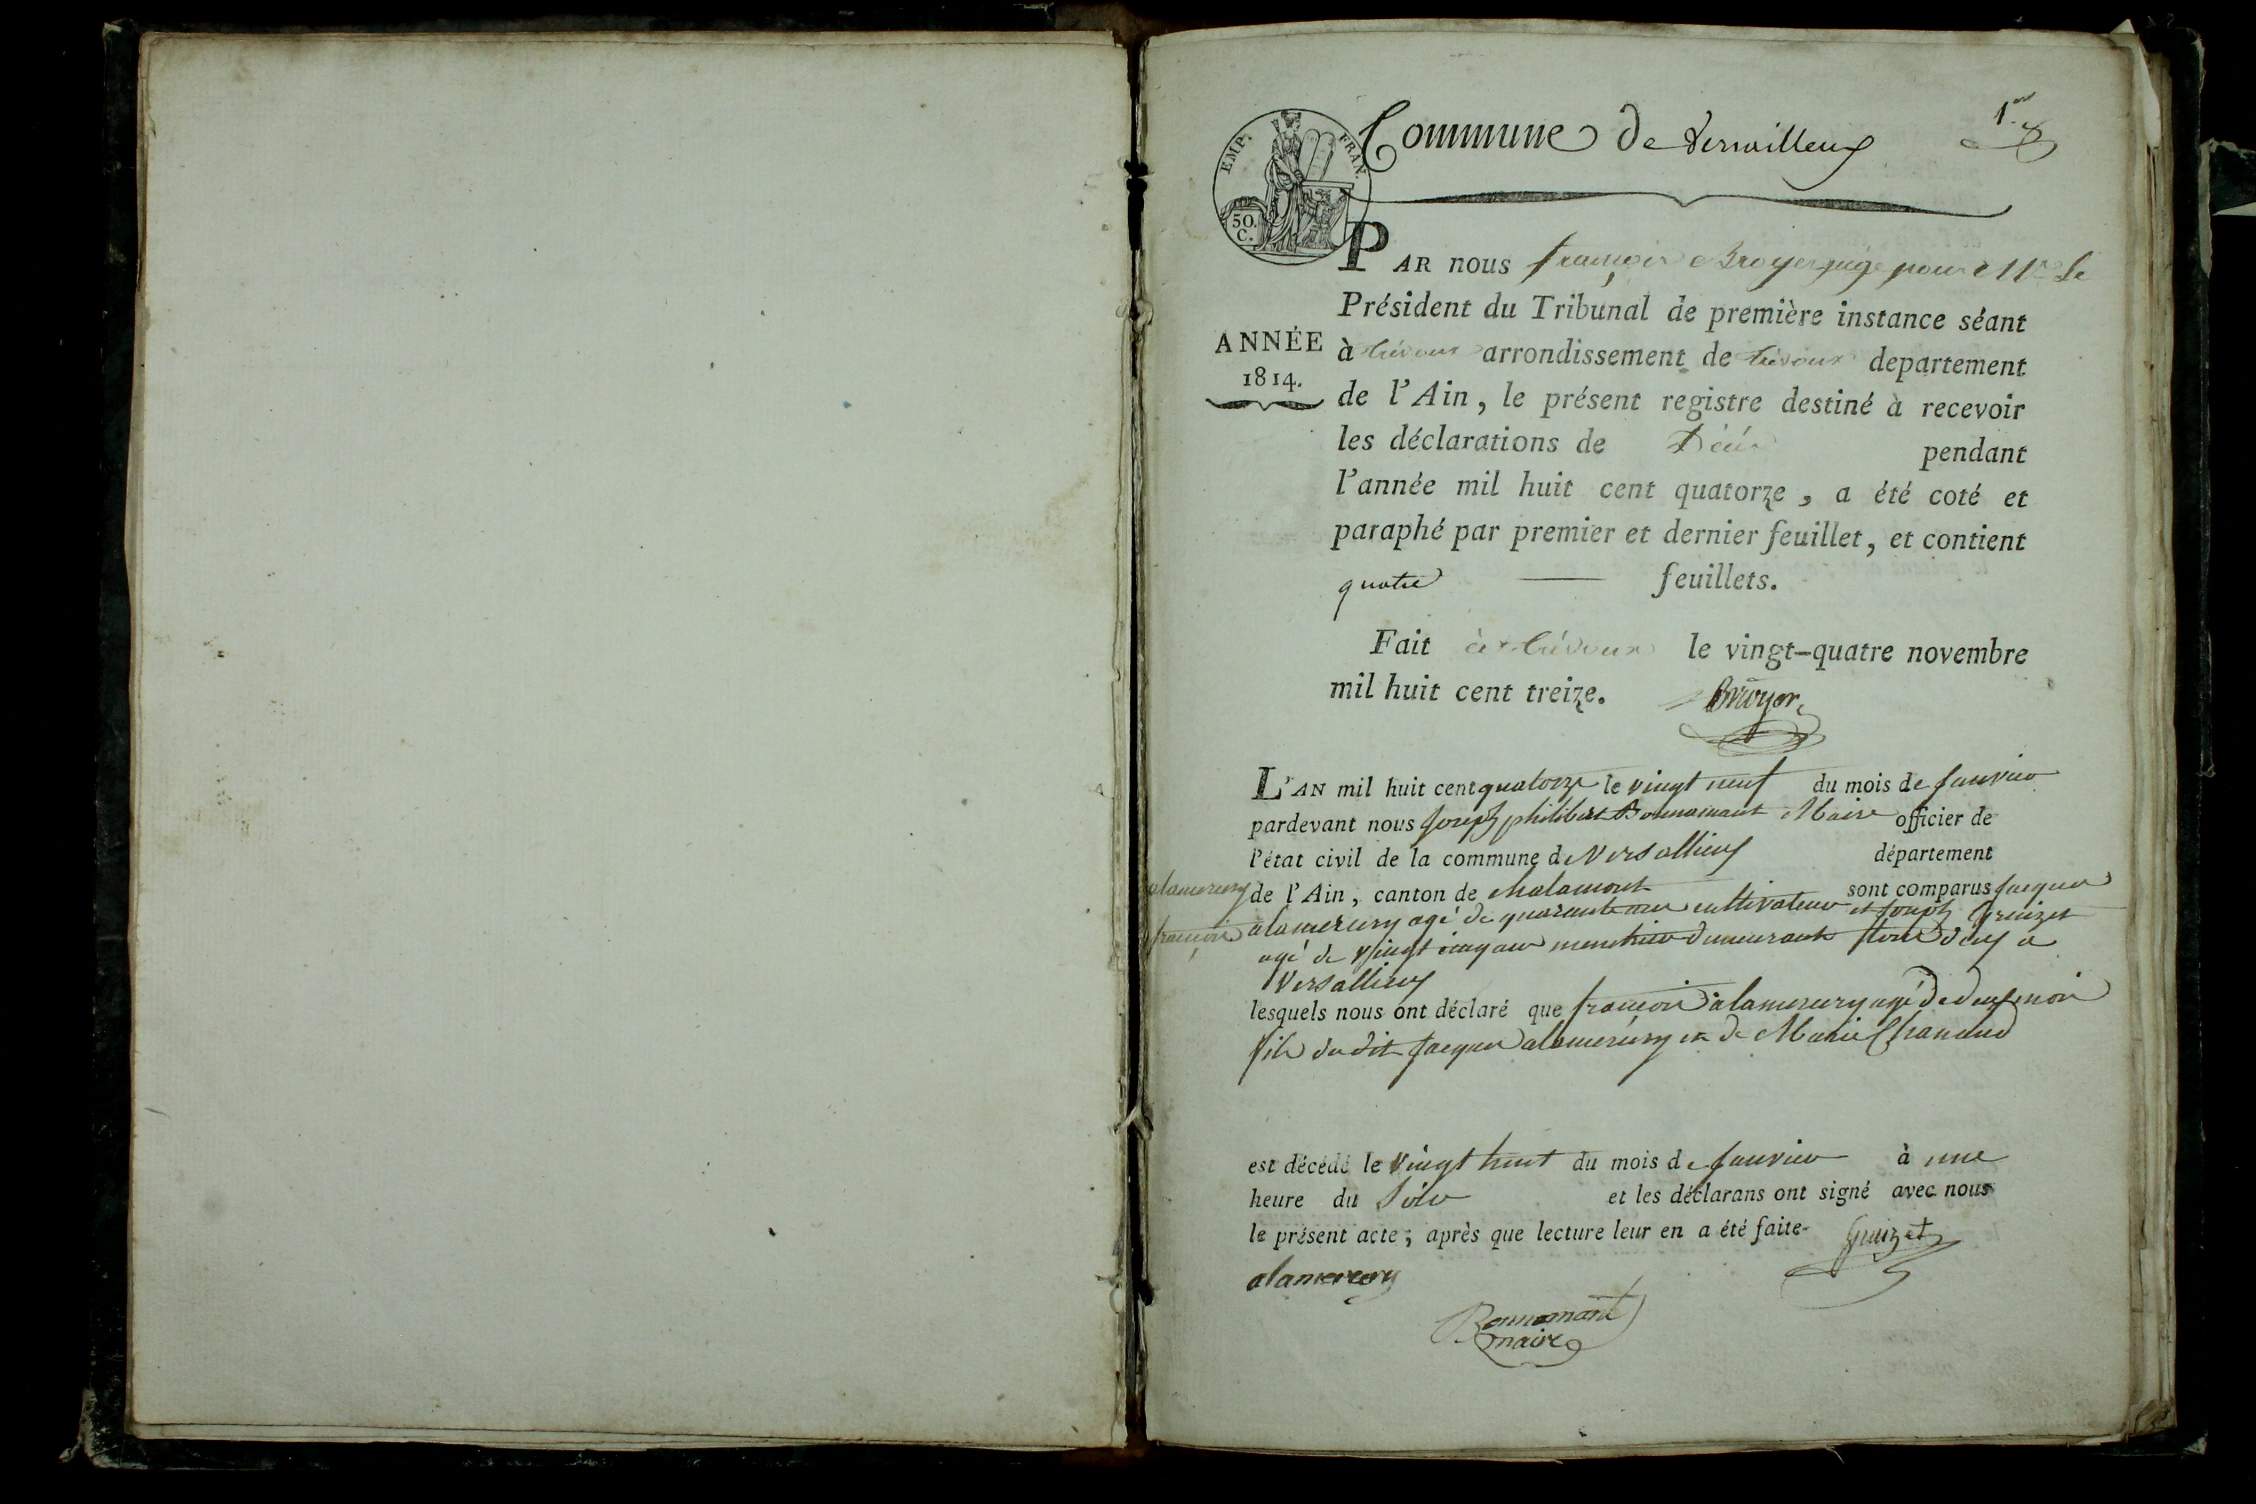 1.er
Commune de Versailleux
EMP. FRAN.
50. C.
PAR nous françois Bruyer juge pour Mr. le
Président du Tribunal de première instance séant
ANNÉE
1814.
à trévoux arrondissement de trévoux departement
de l'Ain, le présent registre destiné à recevoir
les déclarations de Décès pendant
l'année mil huit cent quatorze, a été coté et
paraphé par premier et dernier feuillet, et contient
quatre feuillets.
Fait à trévoux le vingt-quatre novembre
mil huit cent treize. Bruyer
L'AN mil huit cent quatorze le vingt neuf du mois de janvier
pardevant nous joseph philibert Bonnamant Maire officier de
l'état civil de la commune de Versallieux département
alamercery
françois
de l'Ain, canton de chalamont sont comparus jacques
alamercery agé de quarante ans cultivateur et joseph Greuzet
agé de vingt cinq ans demeurant tous deux a
Versallieux
lesquels nous ont déclaré que françois alamercery agé de deux mois
fils du dit jacques alamercery et de Marie
est décédé le vingt huit du mois de janvier à une
heure du soir et les déclarans ont signé avec nous
le présent acte; après que lecture leur en a été faite. Greuzet
alamercery
Bonnamant
maire